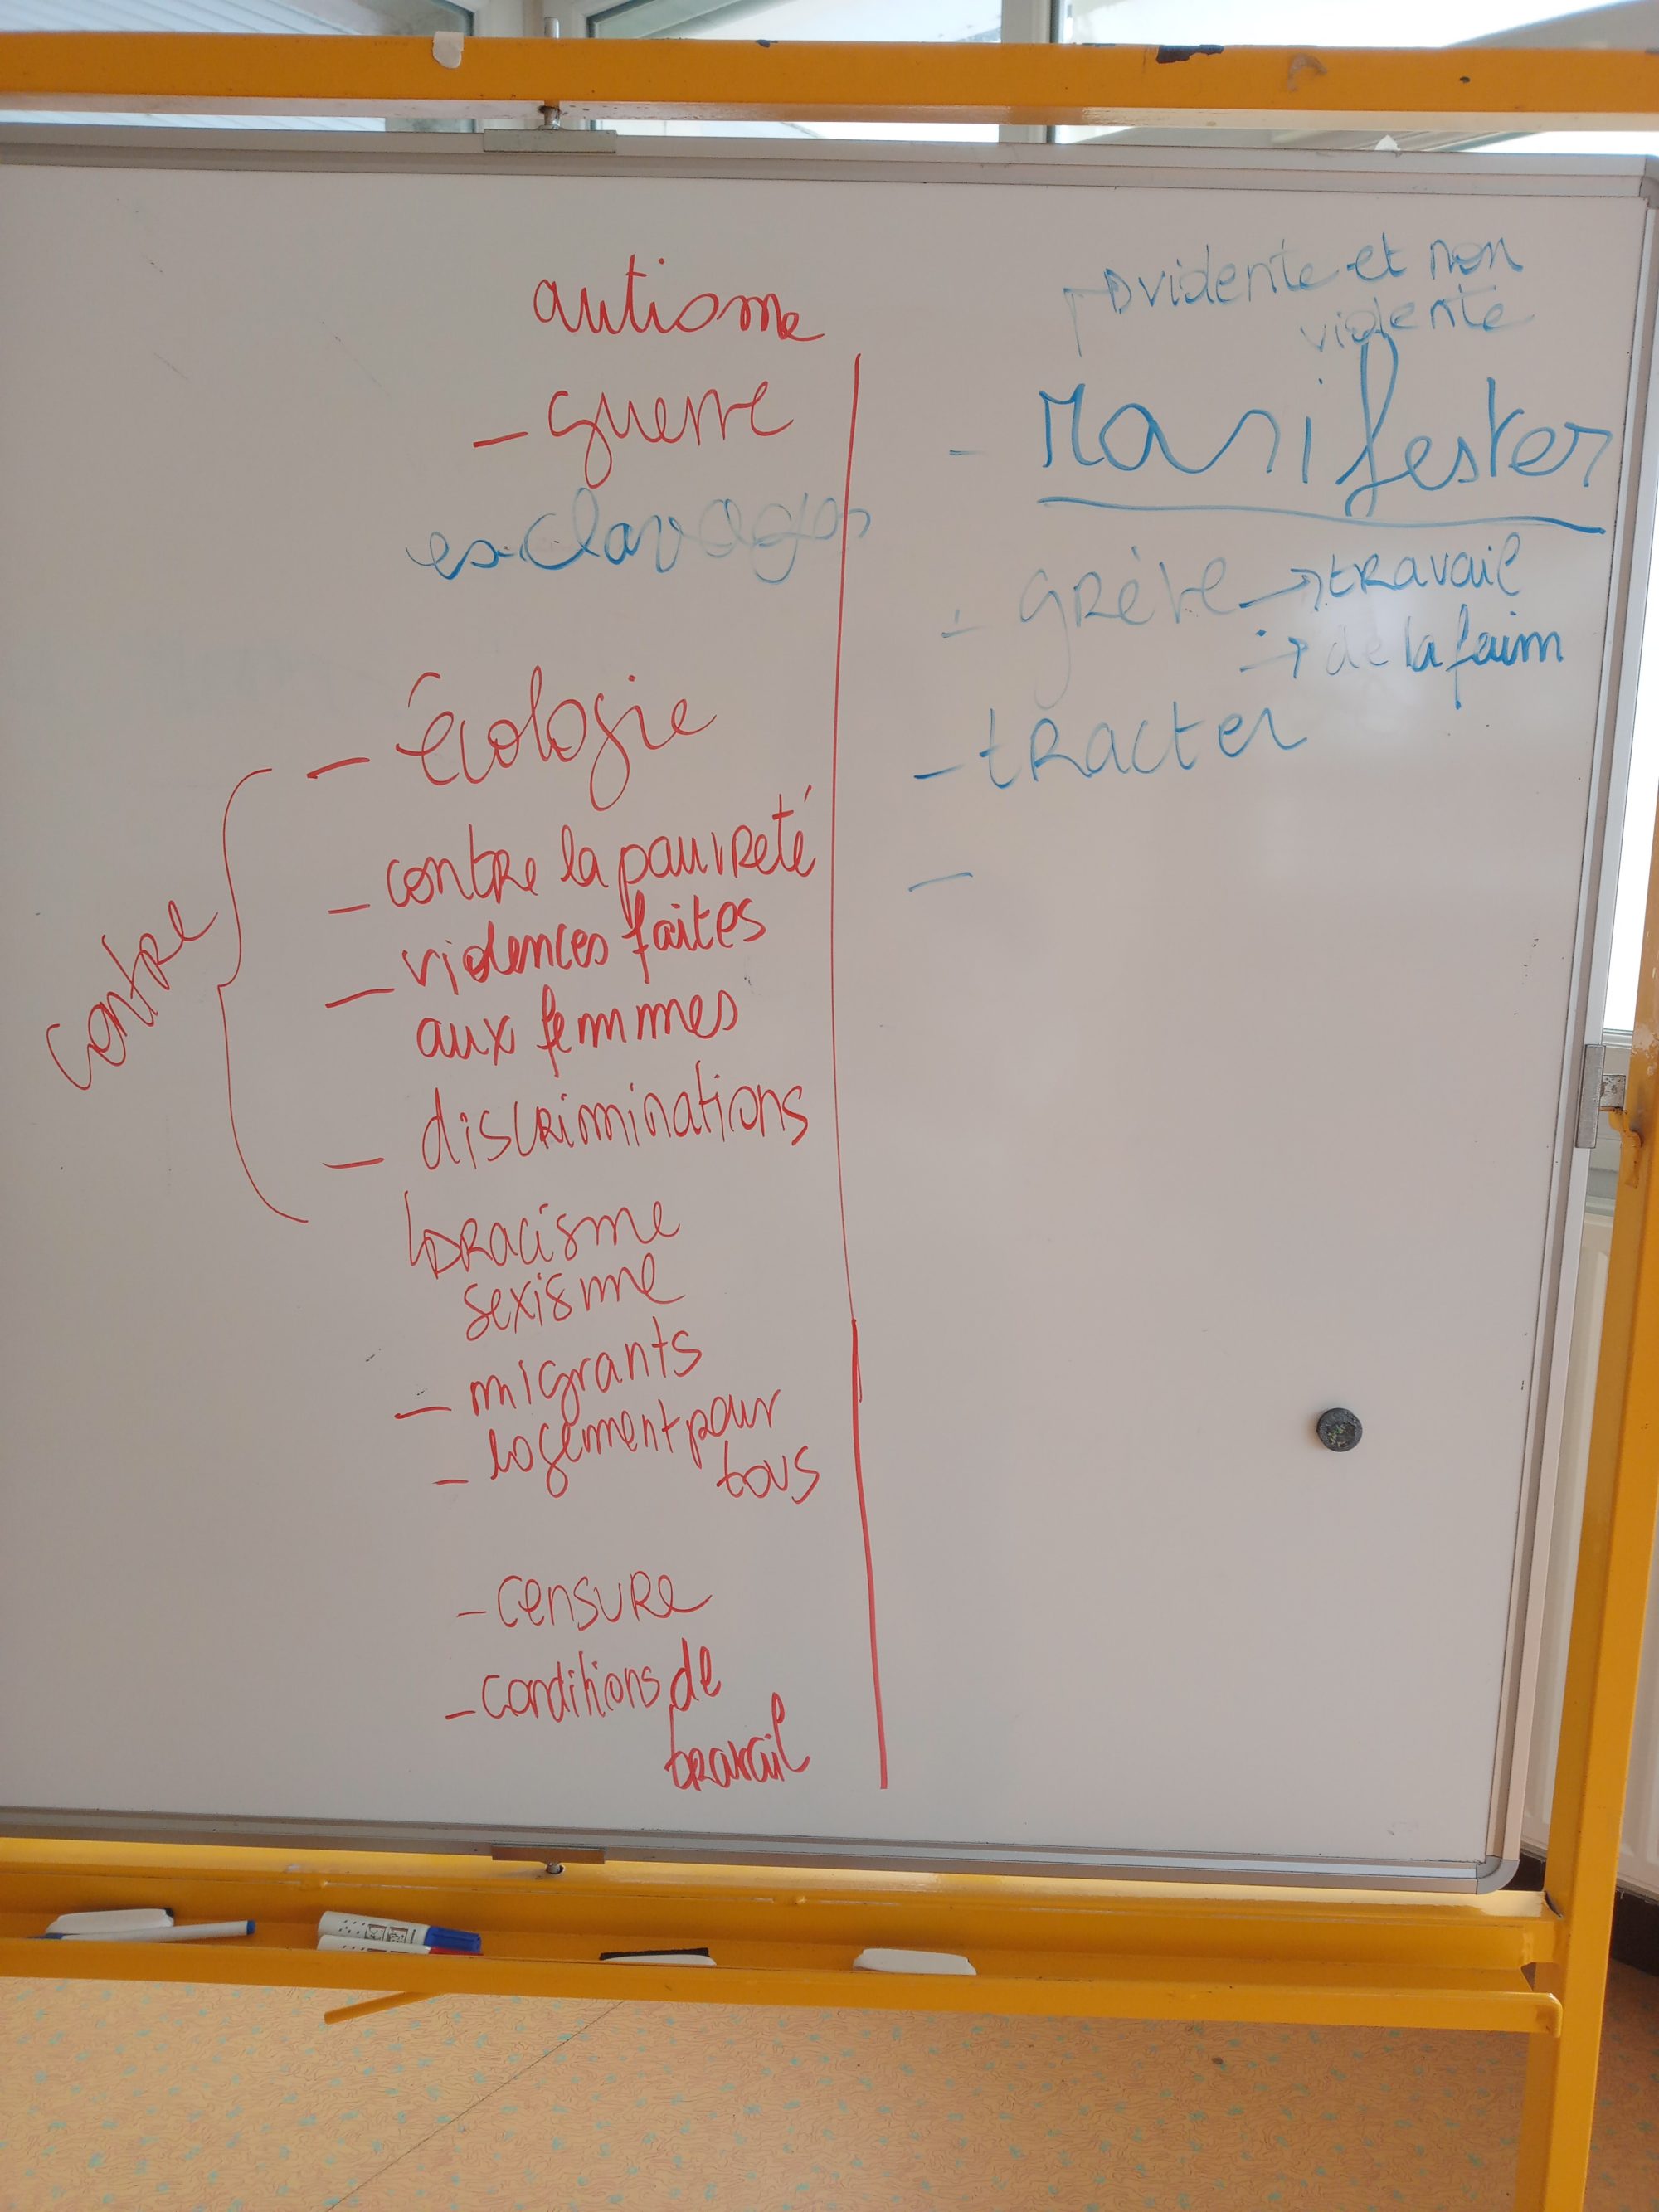 autisme
- guerre
esclavages
- Écologie
contre
- contre la pauvreté
- violences faites
aux femmes
- discriminations
↳ racisme
sexisme
- migrants
- logement pour
tous
- censure
- conditions de
travail
→ violente et non
violente
- Manifester
- grève → travail
→ de la faim
- tracter
-